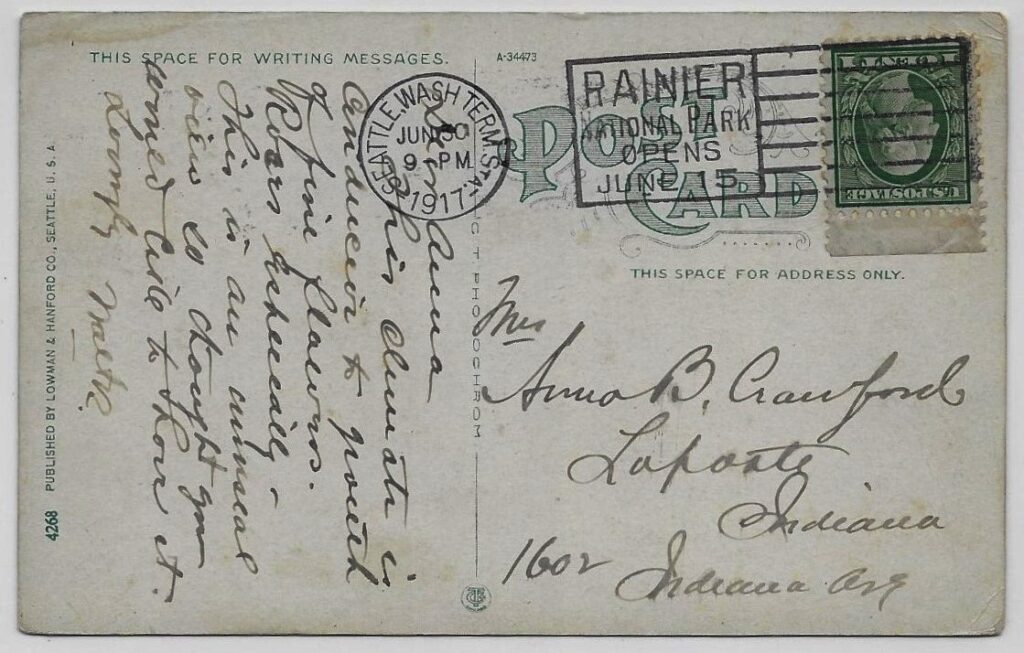 THIS SPACE FOR WRITING MESSAGES.
A-34473
POST CARD
THIS SPACE FOR ADDRESS ONLY.
SEATTLE, WASH. TERM. STA.
JUN 30
9 - PM
1917
RAINIER
NATIONAL PARK
OPENS
JUNE 15
U.S. POSTAGE
Dear Anna
This Climate is
Conduceir to growth
of fine flowers.
Roses especially -
This is an unusual
view so thought you
would like to have it.
Lovingly
Mrs
Anna B. Crawford
Laporte
Indiana
1602
Indiana Ave
PUBLISHED BY LOWMAN & HANFORD CO., SEATTLE, U. S. A.
4268
PHOTOCHROM